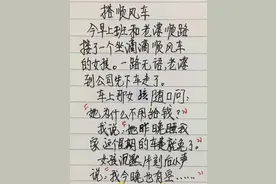 搭顺风车
今早上班和老漂顺路
搭了一个坐滴滴顺风车
的女孩。一路无话,老漂
到公司先下车走了。
车上那女孩随口问:
“她为什么不用给钱?”
我说:“她昨晚睡我
家这个月的车费就免了。”
女孩沉默片刻后小声
说:我今晚也有空……